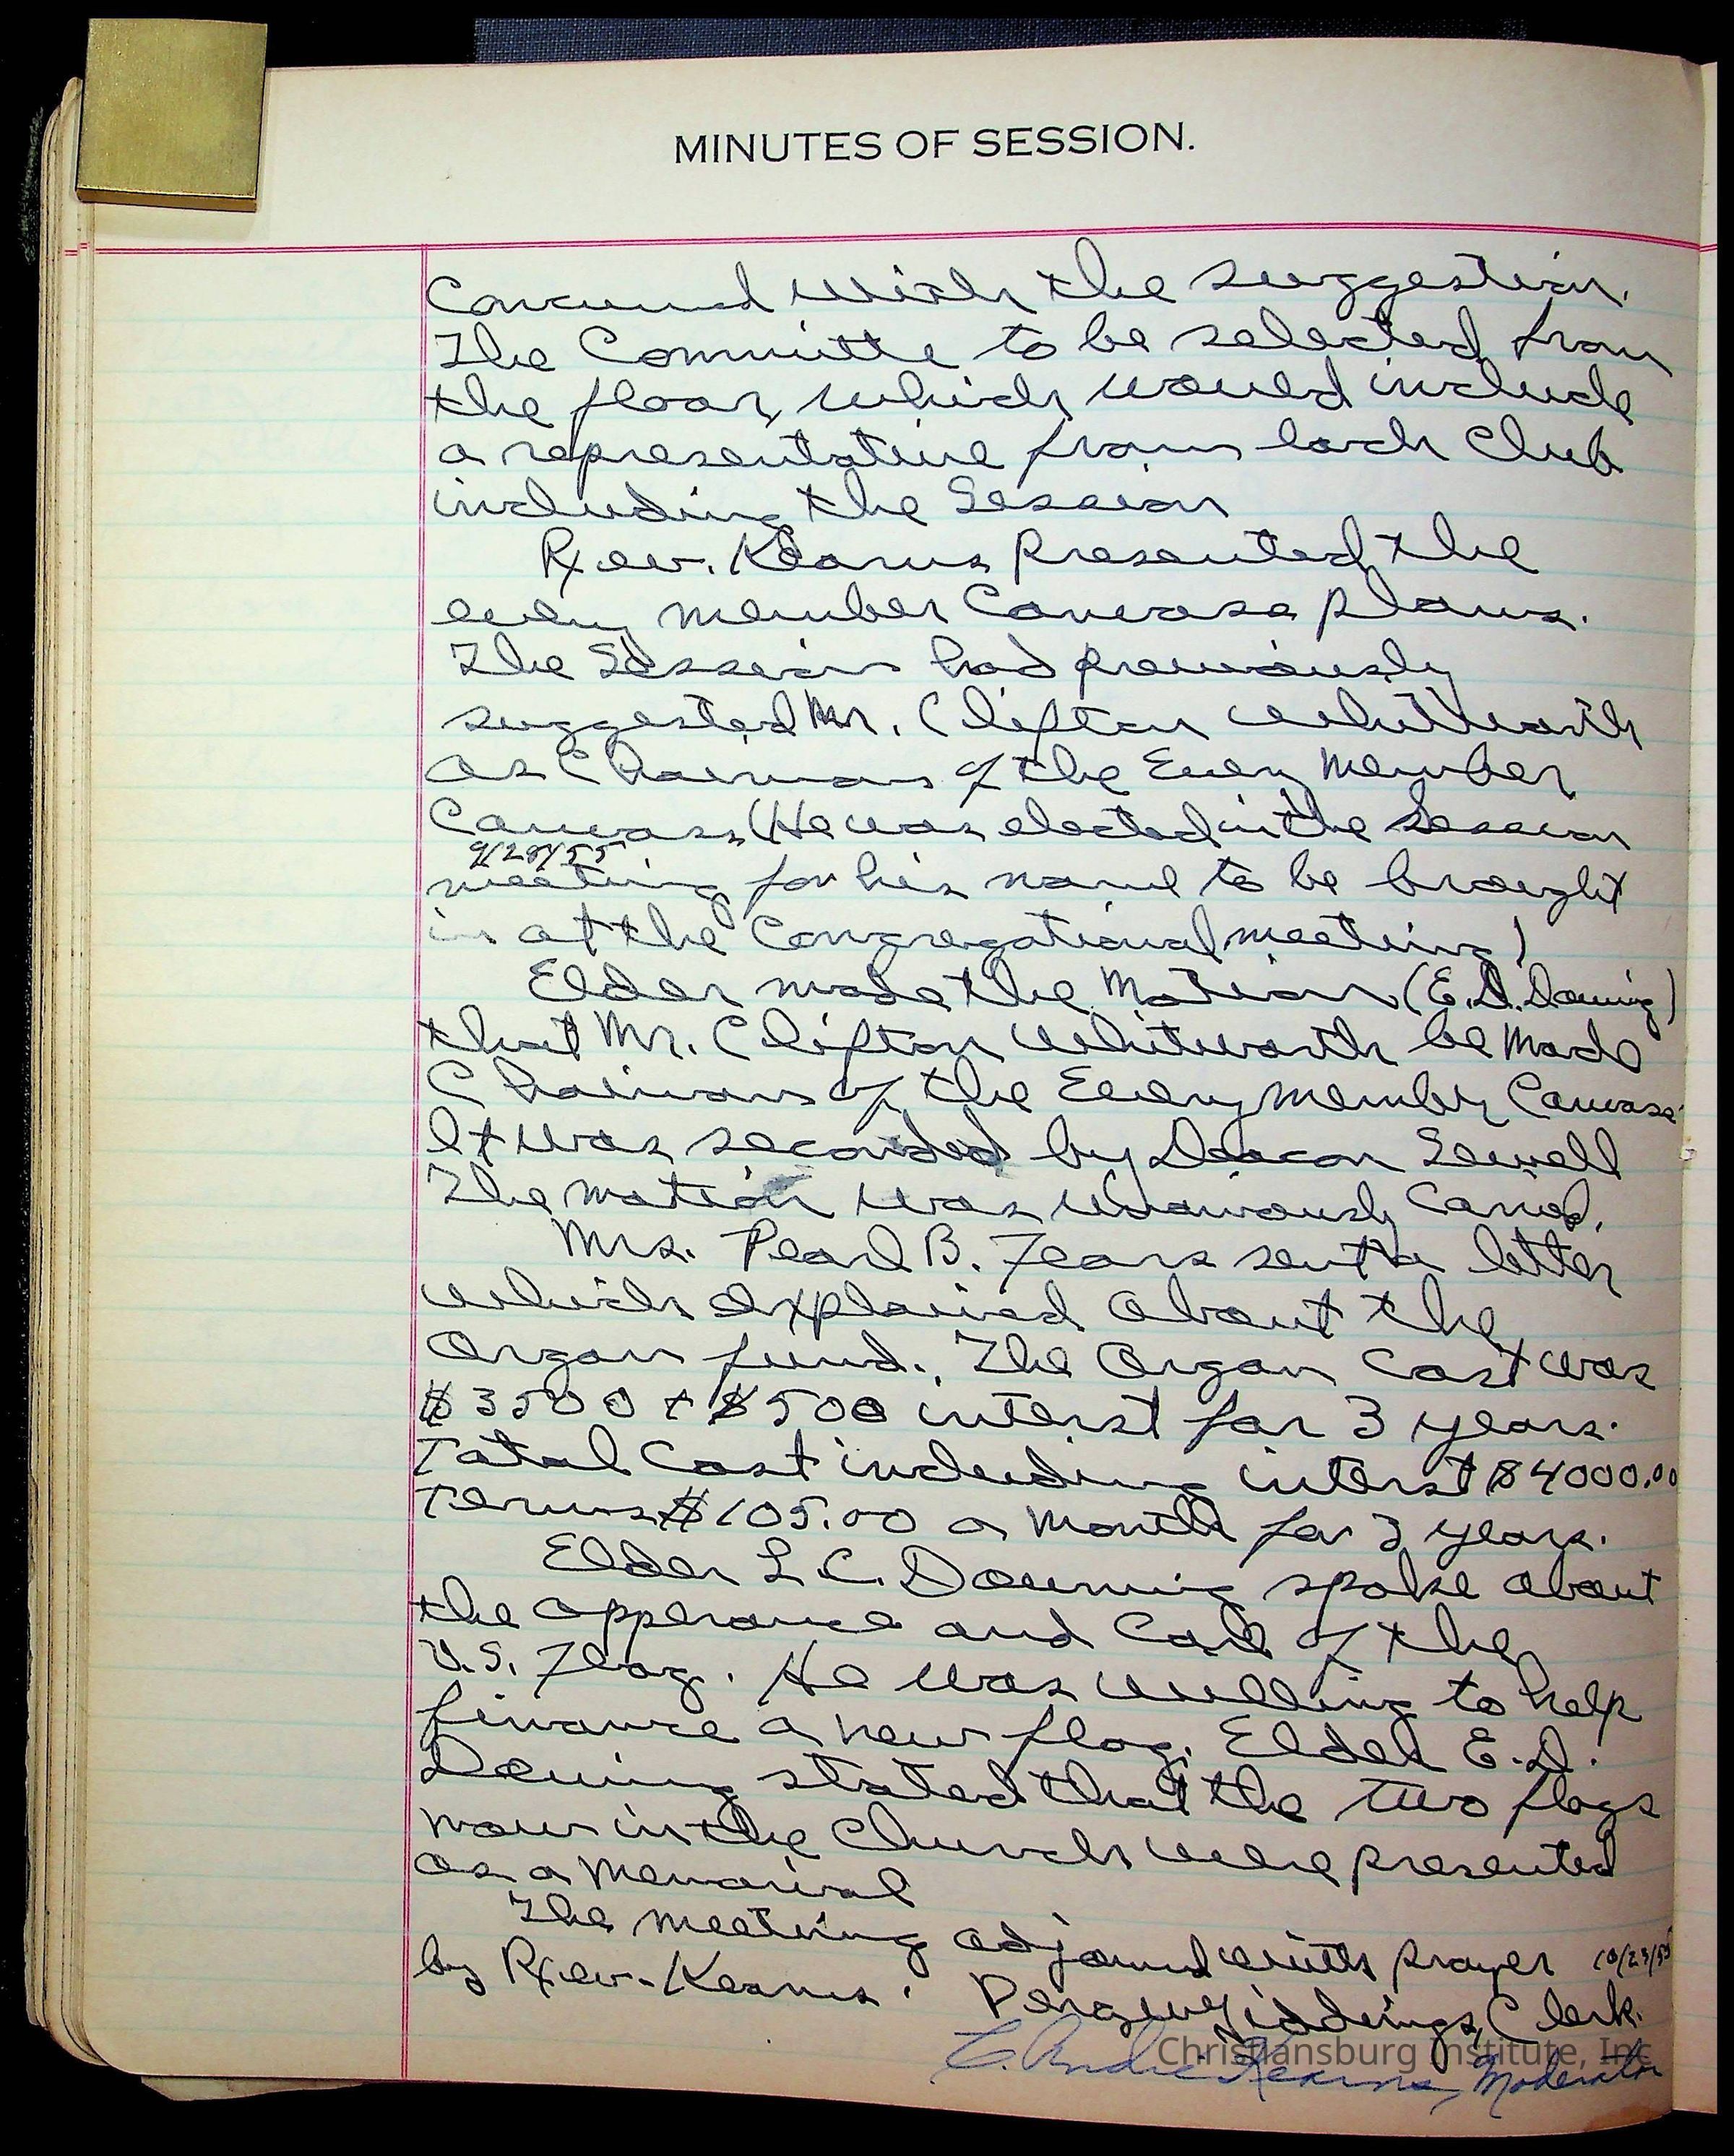 MINUTES OF SESSION.
Concurred with the suggestion.
The Committe to be selected from
the floor, which would include
a representative from each Club
including the Session
Rev. Kearns presented the
every member Canvass plans.
The Session had previously
suggested Mr. Clifton Whitworth
as Chairman of the Every Member
Canvass, (He was elected in the Session
9/28/55
meeting for his name to be brought
in at the Congregational meeting)
Elder made the Motion (E.D. Downing)
that Mr. Clifton Whitworth be made
Chairman of the Every member Canvass
It was seconded by Deacon Sewell
The motion was carried.
Mrs. Pearl B. Fears sent a letter
which explained about the
Organ fund. The Organ cost was
$3500 + $500 interst for 3 years.
Total Cost including interst $4000.00
Terms $105.00 a month for 3 years.
Elder L.C. Downing spoke about
the apperance and Care of the
U.S. Flag. He was willing to help
finance a new flag. Elder E.D.
Downing stated that the two flags
now in the Church were presented
as a Memorial
The meeting adjourned with prayer 10/23/55
by Rev. Kearns. Giddings, Clerk.
C. Andre Kearns, Moderator
Christiansburg Institute, Inc